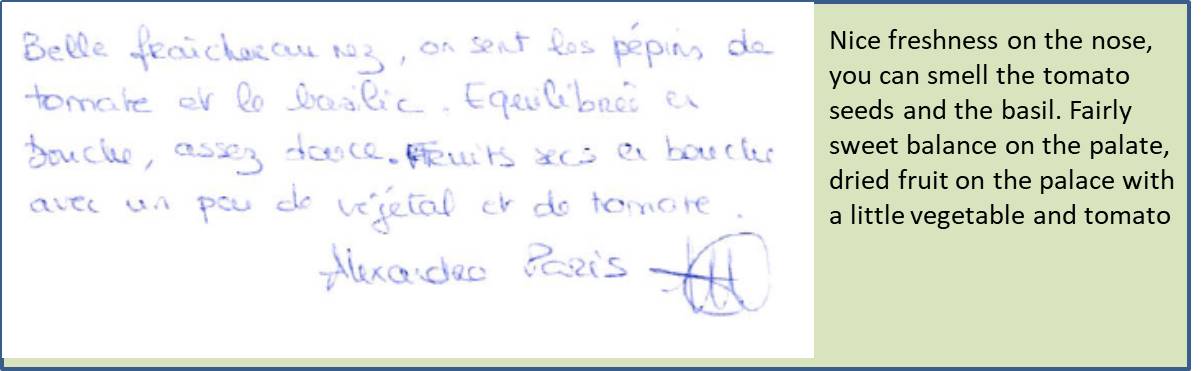 Belle fraîcheur au nez, on sent les pépins de
tomate et le basilic. Equilibrée en
bouche, assez douce. Fruits secs en bouche
avec un peu de végétal et de tomate.
Alexandra Paris
Nice freshness on the nose,
you can smell the tomato
seeds and the basil. Fairly
sweet balance on the palate,
dried fruit on the palace with
a little vegetable and tomato